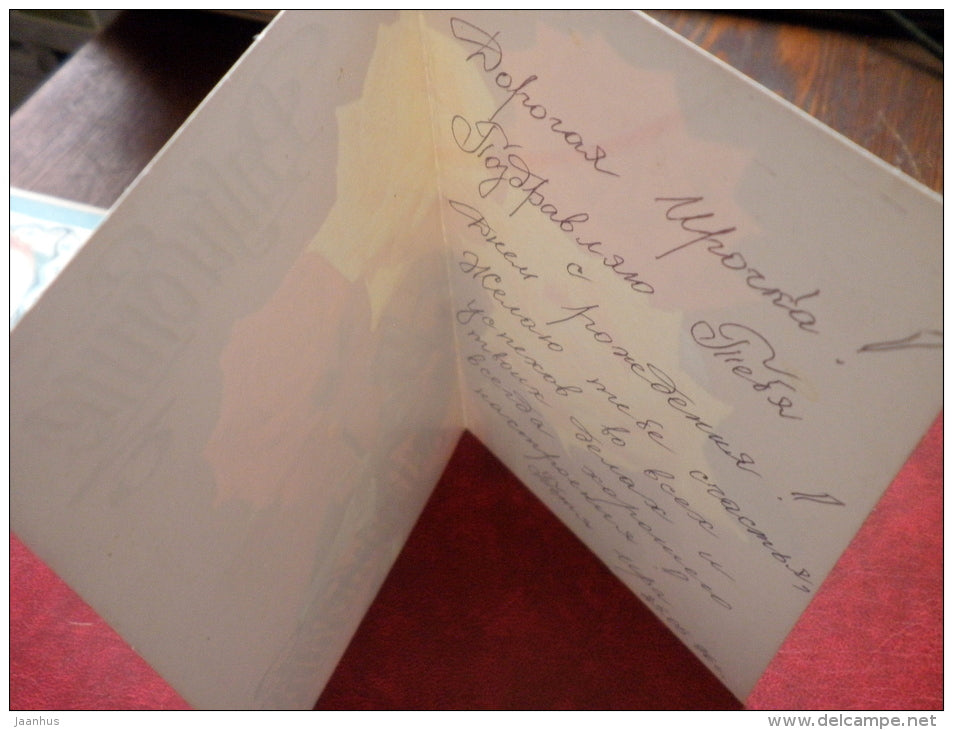 Дорогая Ирочка!
Поздравляю Тебя
с Днем рождения!
Желаю тебе счастья,
успехов во всех
твоих делах и
всегда хорошего
настроения.
Jaanhus
www.delcampe.net